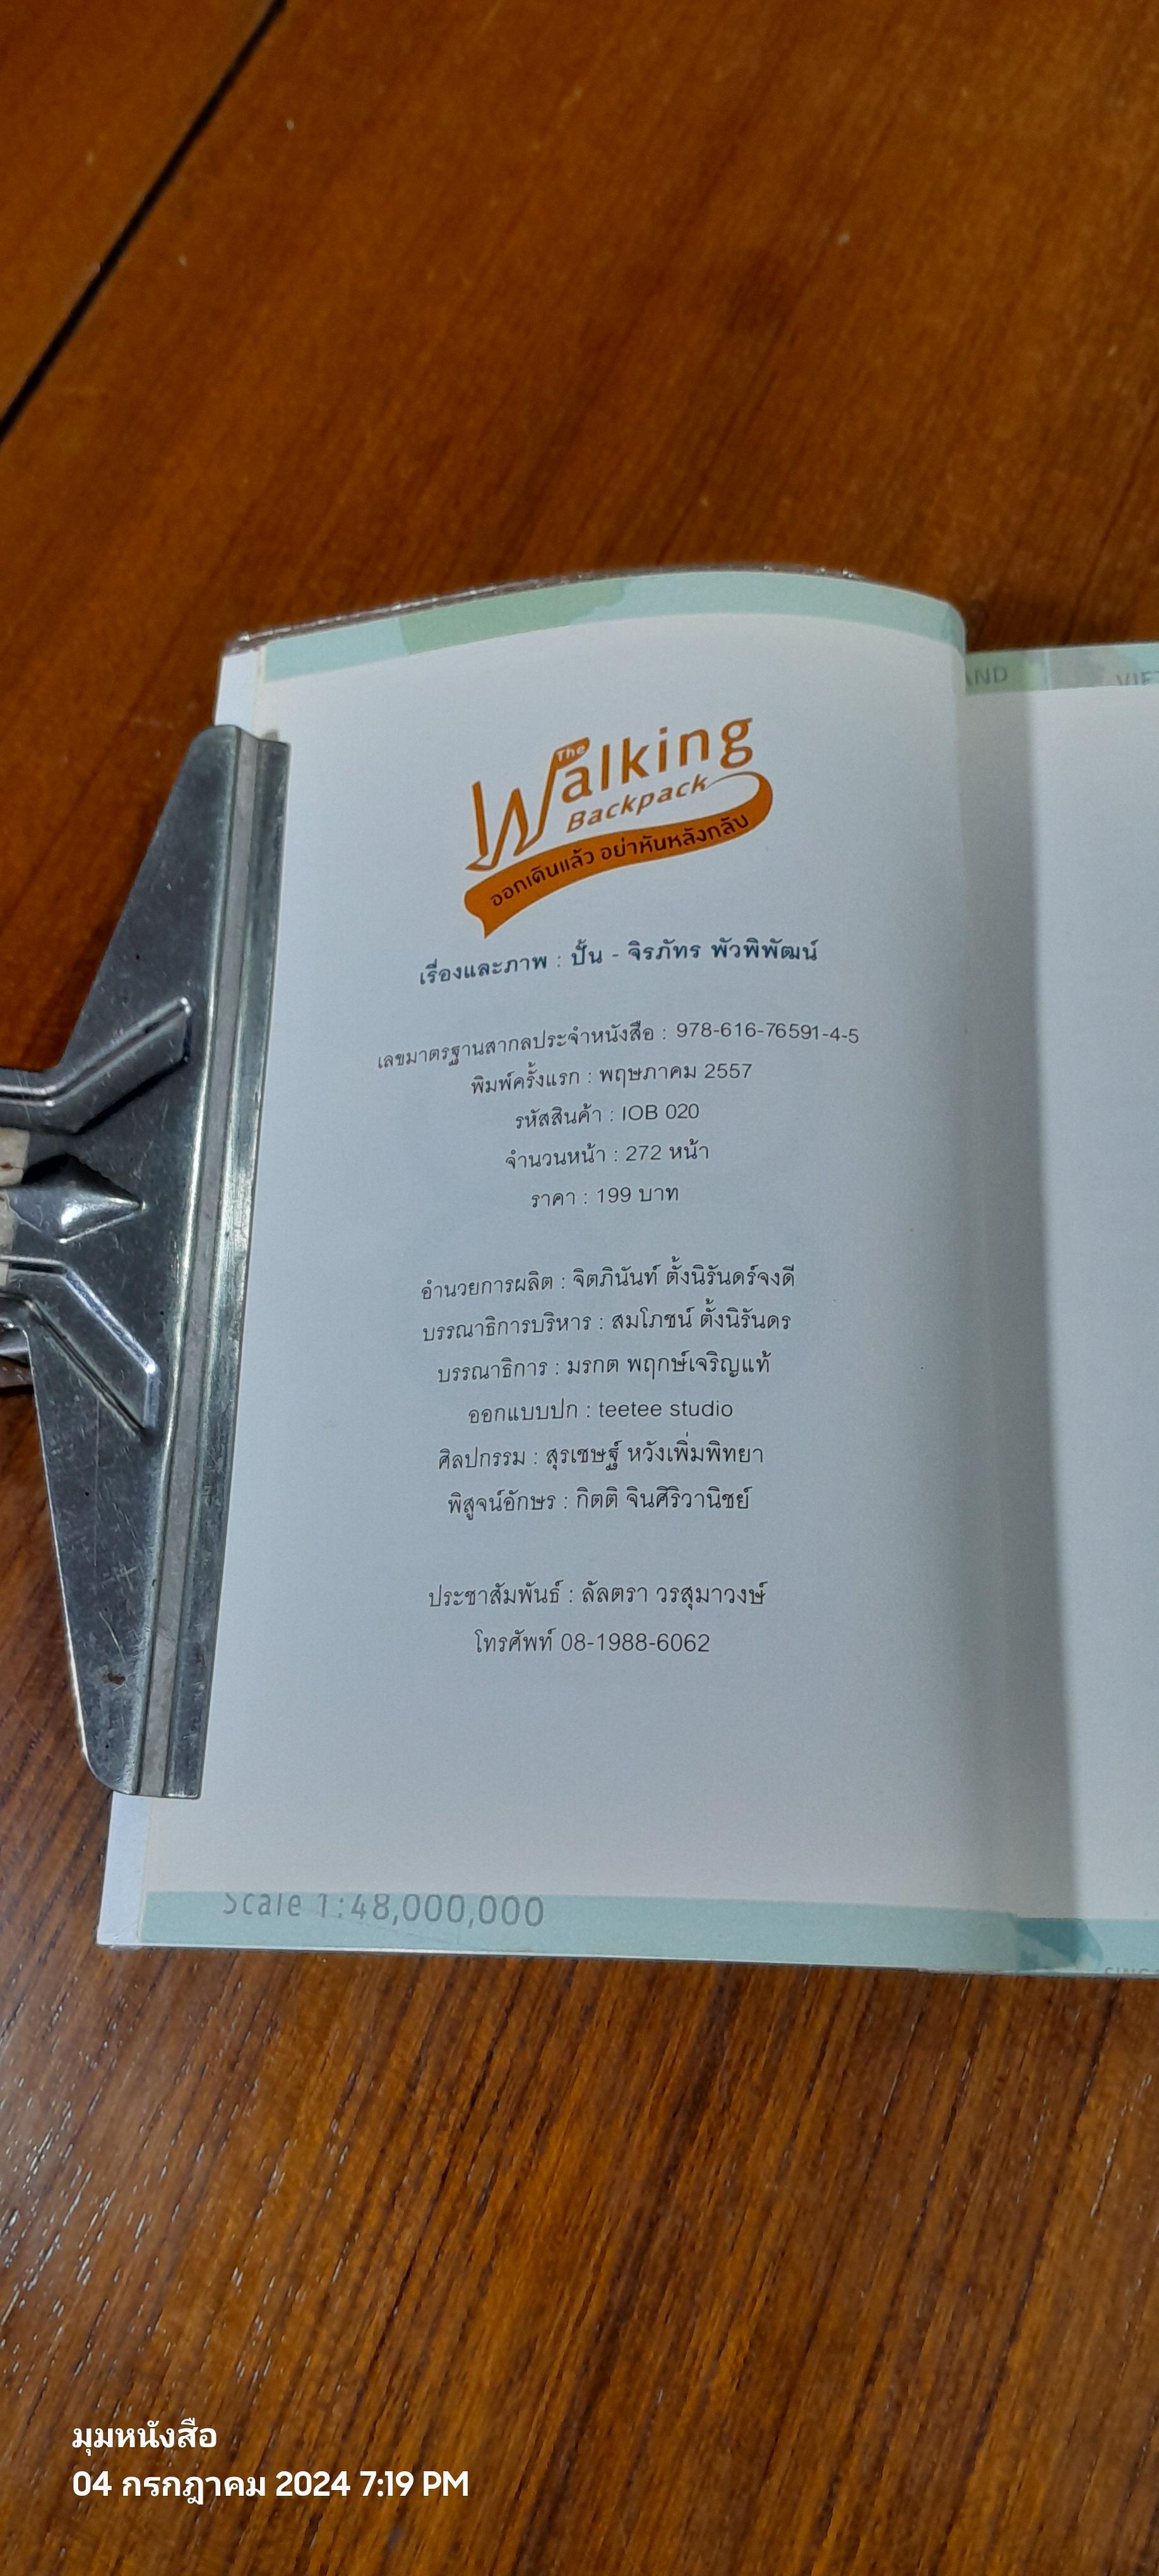 The
Walking
Backpack
ออกเดินแล้ว อย่าหันหลังกลับ
เรื่องและภาพ : ปั้น - จิรภัทร พัวพิพัฒน์
เลขมาตรฐานสากลประจำหนังสือ : 978-616-76591-4-5
พิมพ์ครั้งแรก : พฤษภาคม 2557
รหัสสินค้า : IOB 020
จำนวนหน้า : 272 หน้า
ราคา : 199 บาท
อำนวยการผลิต : จิตภินันท์ ตั้งนิรันดร์จงดี
บรรณาธิการบริหาร : สมโภชน์ ตั้งนิรันดร
บรรณาธิการ : มรกต พฤกษ์เจริญแท้
ออกแบบปก : teetee studio
ศิลปกรรม : สุรเชษฐ์ หวังเพิ่มพิทยา
พิสูจน์อักษร : กิตติ จินศิริวานิชย์
ประชาสัมพันธ์ : ลัลตรา วรสุมาวงษ์
โทรศัพท์ 08-1988-6062
Scale 1:48,000,000
มุมหนังสือ
04 กรกฎาคม 2024 7:19 PM